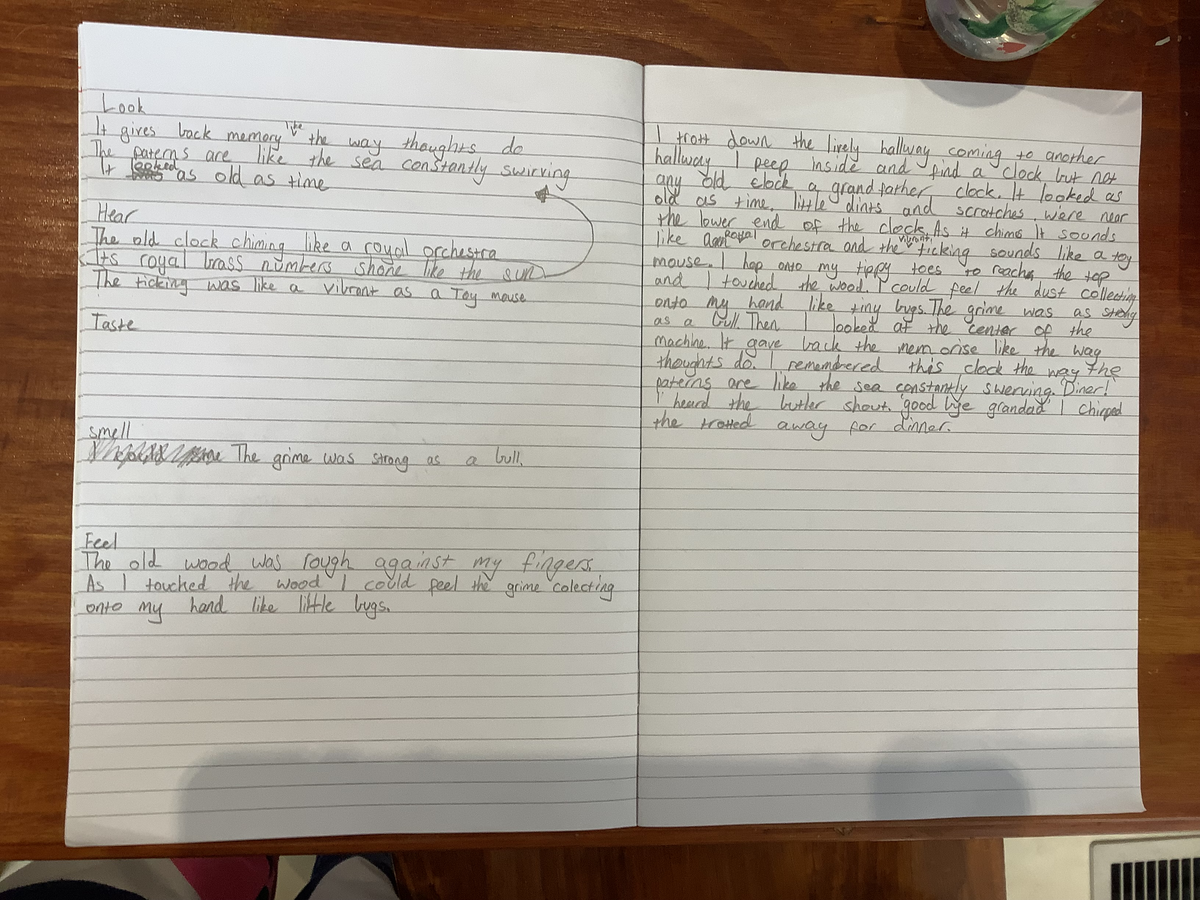 Look
It gives back memory like the way thoughts do
The paterns are like the sea constantly swirving
It looked as old as time
Hear
The old clock chiming like a royal orchestra
Its royal brass numbers shone like the sun
The ticking was like a vibrant as a Toy mouse
Taste
smell
The grime was strong as a bull.
Feel
The old wood was rough against my fingers.
As I touched the wood I could feel the grime colecting
onto my hand like little bugs.
I trott down the lively hallway coming to another
hallway I peep inside and find a clock but not
any old clock a grandfather clock. It looked as
old as time. little dints and scratches were near
the lower end of the clock. As it chims It sounds
like a royal orchestra and the vibrant ticking sounds like a toy
mouse. I hop onto my tippy toes to reach the top
and I touched the wood. I could feel the dust collecting
onto my hand like tiny bugs. The grime was as strong
as a bull. Then I looked at the center of the
machine. It gave back the memorise like the way
thoughts do. I remembered this clock the way the
paterns are like the sea constantly swerving. Diner!
I heard the butler shout. 'good bye grandad' I chirped
the trotted away for dinner.